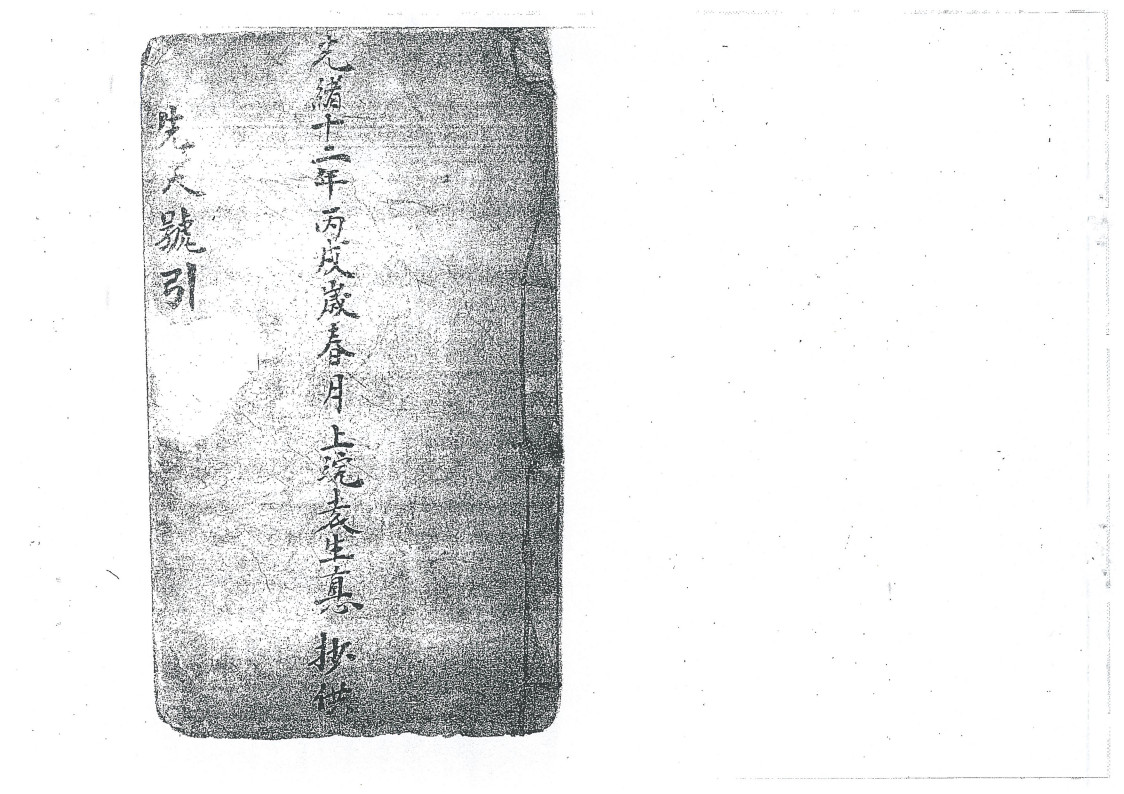 光緒十二年丙戌歲春月上浣袁生惪 抄
先天號引